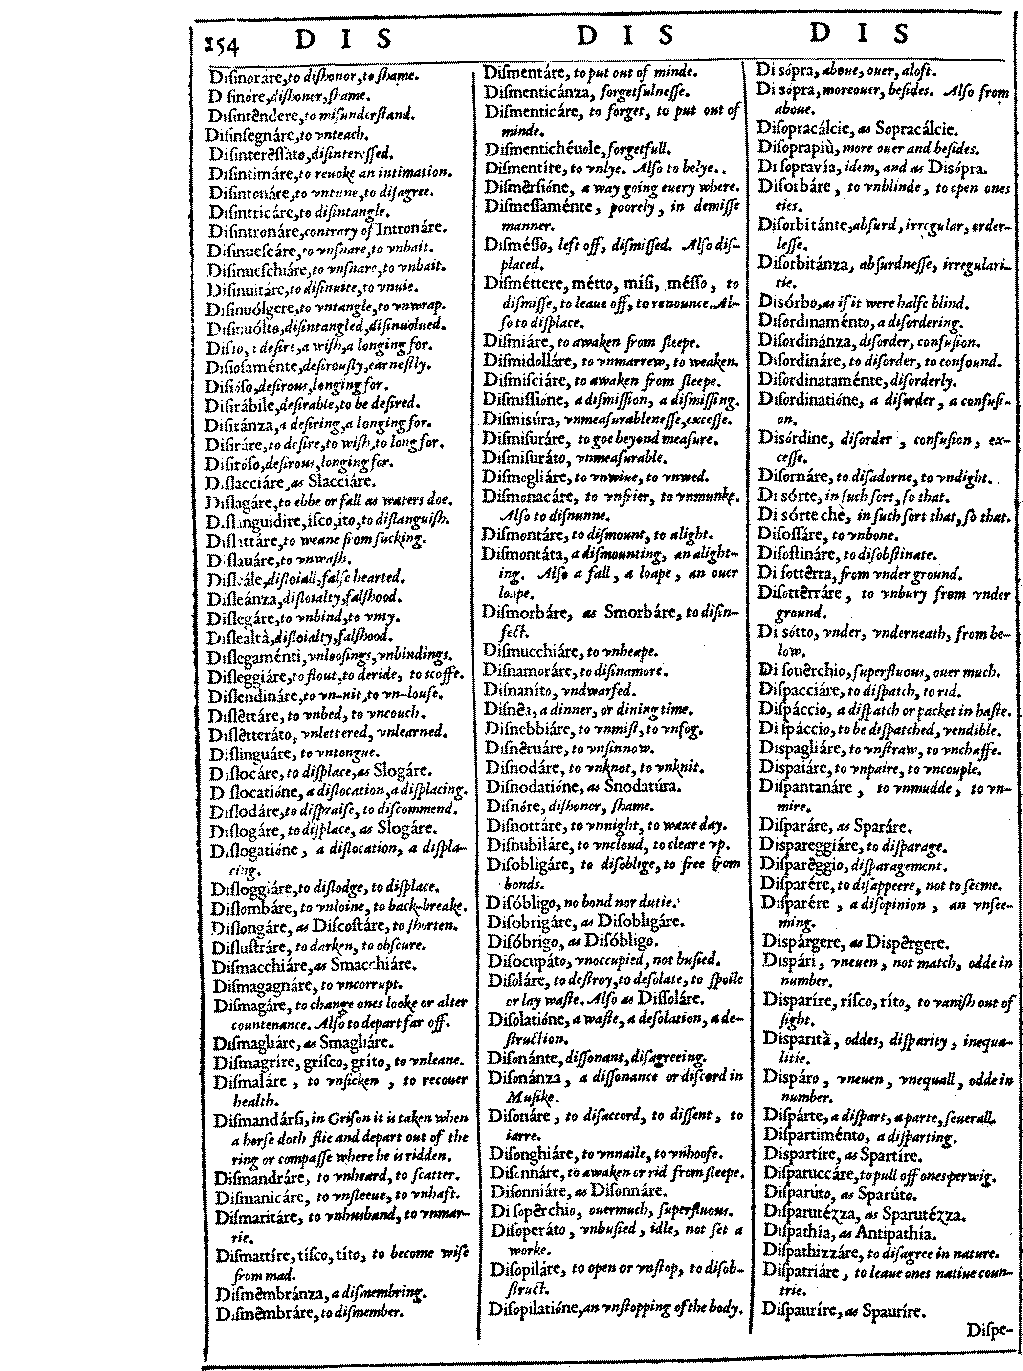 154 D I S D I S D I S
Disinorare, to dishonor, to shame.
D sinore, dishonor, shame.
Disintêndere, to misunderstand.
Disinsegnáre, to vnteach.
Disinterêssáto, disinteressed.
Disintimáre, to reuoke an intimation.
Disintonáre, to vntune, to disagree.
Disintricáre, to disintangle.
Disintronáre, contrary of Intronáre.
Disinuescáre, to vnsnare, to vnbait.
Disinueschiáre, to vnsnare, to vnbait.
Disinuitáre, to disinuite, to vnuie.
Disinuólgere, to vntangle, to vnwrap.
Disinuólto, disintangled, disinuolued.
Disío, a desire, a wish, a longing for.
Disiosaménte, desirously, earnestly.
Disióso, desirous, longing for.
Disirábile, desirable, to be desired.
Disiránza, a desiring, a longing for.
Disiráre, to desire, to wish, to long for.
Disiróso, desirous, longing for.
Dislacciáre, as Slacciáre.
Dislagáre, to ebbe or fall as waters doe.
Dislanguidíre, ísco, íto, to dislanguish.
Dislattáre, to weane from sucking.
Dislauáre, to vnwash.
Disleále, disloiall, false hearted.
Disleánza, disloialty, falshood.
Dislegáre, to vnbind, to vnty.
Dislealtà, disloialty, falshood.
Dislegaménti, vnloosings, vnbindings.
Disleggiáre, to flout, to deride, to scoffe.
Dislendináre, to vn-nit, to vn-louse.
Dislêttáre, to vnbed, to vncouch.
Dislêtteráto, vnlettered, vnlearned.
Dislinguáre, to vntongue.
Dislocáre, to displace, as Slogáre.
D slocatióne, a dislocation, a displacing.
Dislodáre, to dispraise, to discommend.
Dislogáre, to displace, as Slogáre.
Dislogatióne, a dislocation, a displa-
cing.
Disloggiáre, to dislodge, to displace.
Dislombáre, to vnloine, to back-breake.
Dislongáre, as Discostáre, to shorten.
Dislustráre, to darken, to obscure.
Dismacchiáre, as Smacchiáre.
Dismagagnáre, to vncorrupt.
Dismagáre, to change ones looke or alter
countenance. Also to depart far off.
Dismagliáre, as Smagliáre.
Dismagríre, grísco, gríto, to vnleane.
Dismaláre, to vnsicken, to recouer
health.
Dismandársi, in Grison it is taken when
a horse doth flie and depart out of the
ring or compasse where he is ridden.
Dismandráre, to vnheard, to scatter.
Dismanicáre, to vnsleeue, to vnhaft.
Dismaritáre, to vnhusband, to vnmar-
rie.
Dismattíre, tísco, títo, to become wise
from mad.
Dismêmbránza, a dismembring.
Dismêmbráre, to dismember.
Dismentáre, to put out of minde.
Dismenticánza, forgetfulnesse.
Dismenticáre, to forget, to put out of
minde.
Dismentichéuole, forgetfull.
Dismentíre, to vnlye. Also to belye.
Dismêrsióne, a way going euery where.
Dismessaménte, poorely, in demisse
manner.
DisMésso, left off, dismissed. Also dis-
placed.
Disméttere, métto, mísi, mésso, to
dismisse, to leaue off, to renounce. Al-
so to displace.
Dismiáre, to awaken from sleepe.
Dismidolláre, to vnmarrew, to weaken.
Dismisciáre, to awaken from sleepe.
Dismissióne, a dismission, a dismissing.
Dismisúra, vnmeasurablenesse, excesse.
Dismisuráre, to goe beyond measure.
Dismisuráto, vnmeasurable.
Dismogliáre, to vnwiue, to vnwed.
Dismonacáre, to vnfrier, to vnmunke.
Also to disnunne.
Dismontáre, to dismount, to alight.
Dismontáta, a dismounting, an alight-
ing. Also a fall, a loape, an ouer
loape.
Dismorbáre, as Smorbáre, to disin-
fect.
Dismucchiáre, to vnheape.
Disnamoráre, to disinamore.
Disnaníto, vndwarfed.
Disnêi, a dinner, or dining time.
Disnebbiáre, to vnmist, to vnfog.
Disnêruáre, to vnsinnow.
Disnodáre, to vnknot, to vnknit.
Disnodatióne, as Snodatúra.
Disnóre, dishonor, shame.
Disnottáre, to vnnight, to waxe day.
Disnubiláre, to vncloud, to cleare vp.
Disobligáre, to disoblige, to free from
bonds.
Disóbligo, no bond nor dutie.
Disobrigáre, as Disobligáre.
Disóbrigo, as Disóbligo.
Disocupáto, vnoccupied, not busied.
Disoláre, to destroy, to desolate, to spoile
or lay waste. Also as Dissoláre.
Disolatióne, a waste, a desolation, a de-
struction.
Disonánte, dissonant, disagreeing.
Disonánza, a dissonance or discord in
Musike.
Disonáre, to disaccord, to dissent, to
iarre.
Disonghiáre, to vnnaile, to vnhoofe.
Disonnáre, to awaken or rid from sleepe.
Disonniáre, as Disonnáre.
Di sopêrchio, ouermuch, superfluous.
Disoperáto, vnbusied, idle, not set a
worke.
Disopiláre, to open or vnstop, to disob-
struct.
Disopilatióne, an vnstopping of the body.
Di sópra, aboue, ouer, aloft.
Di sópra, moreouer, besides. Also from
aboue.
Disopracálcie, as Sopracálcie.
Disoprapiù, more ouer and besides.
Di sopravía, idem, and as Disópra.
Disorbáre, to vnblinde, to open ones
eies.
Disorbitánte, absurd, irregular, order-
lesse.
Disorbitánza, absurdnesse, irregulari-
tie.
Disórbo, as if it were halfe blind.
Disordinaménto, a disordering.
Disordinánza, disorder, confusion.
Disordináre, to disorder, to confound.
Disordinataménte, disorderly.
Disordinatióne, a disorder, a confusi-
on.
Disórdine, disorder, confusion, ex-
cesse.
Disornáre, to disadorne, to vndight.
Di sórte, in such sort, so that.
Di sórte chè, in such sort that, so that.
Disossáre, to vnbone.
Disostináre, to disobstinate.
Di sottêrra, from vnder ground.
Disottêrráre, to vnbury from vnder
ground.
Di sótto, vnder, vnderneath, from be-
low.
Di souêrchio, superfluous, ouer much.
Dispacciáre, to dispatch, to rid.
Dispáccio, a dispatch or packet in haste.
Di spáccio, to be dispatched, vendible.
Dispagliáre, to vnstraw, to vnchaffe.
Dispaiáre, to vnpaire, to vncouple.
Dispantanáre, to vnmudde, to vn-
mire.
Disparáre, as Sparáre.
Dispareggiáre, to disparage.
Disparêggio, disparagement.
Disparére, to disappeere, not to seeme.
Disparére, a disopinion, an vnsee-
ming.
Dispárgere, as Dispêrgere.
Dispári, vneuen, not match, odde in
number.
Disparíre, rísco, ríto, to vanish out of
sight.
Disparità, oddes, disparity, inequa-
litie.
Dispáro, vneuen, vnequall, odde in
number.
Dispárte, a dispart, a parte, seuerall.
Dispartiménto, a disparting.
Dispartíre, as Spartíre.
Disparuccáre, to pull off ones perwig.
Disparúto, as Sparúto.
Disparutézza, as Sparutézza.
Dispathía, as Antipathía.
Dispathizzáre, to disagree in nature.
Dispatriáre, to leaue ones natiue coun-
trie.
Dispauríre, as Spauríre.
Dispe-